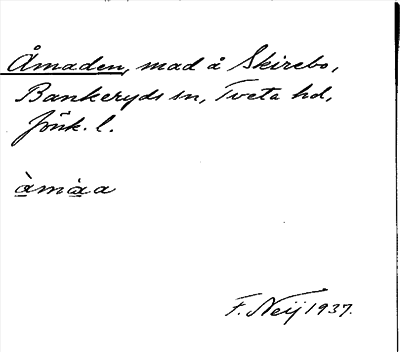 Åmaden, mad å Skirebo,
Bankeryds sn, Tveta hd,
Jönk. l.
àmàa
F. Neij 1937.